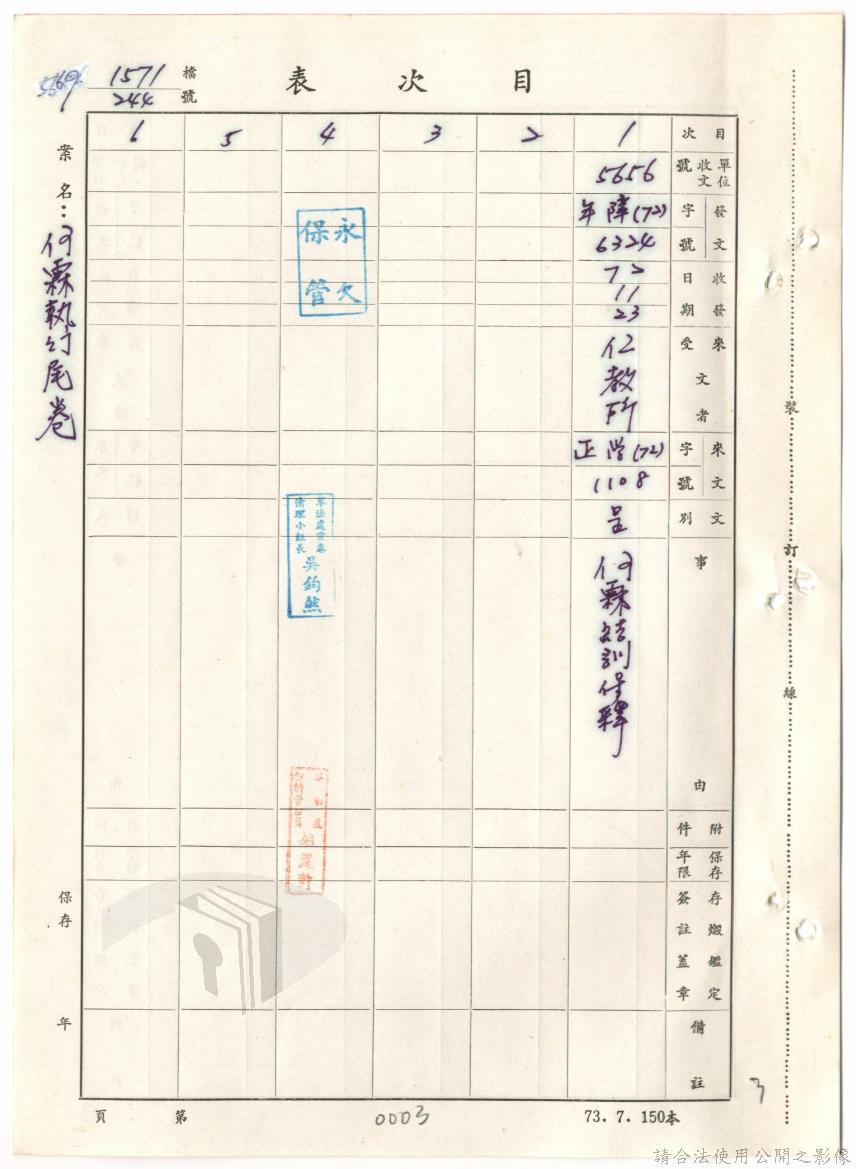 目次表
檔號
1571
244
案名：何霖執行尾卷
保存 年
目次
1 2 3 4 5 6
單位收文號
5656
發文字號
年障(72)
6324
收發日期
72
11
23
來文受文者
仁教所
來文字號
正學(72)
1108
文別
呈
事由
何霖結訓保釋
附件
保存年限
存燬鑑定簽註蓋章
備註
永久保管
軍法處當案
清理小組長
吳鈞然
裝訂線
第 頁
0003
73. 7. 150本
3
請合法使用公開之影像